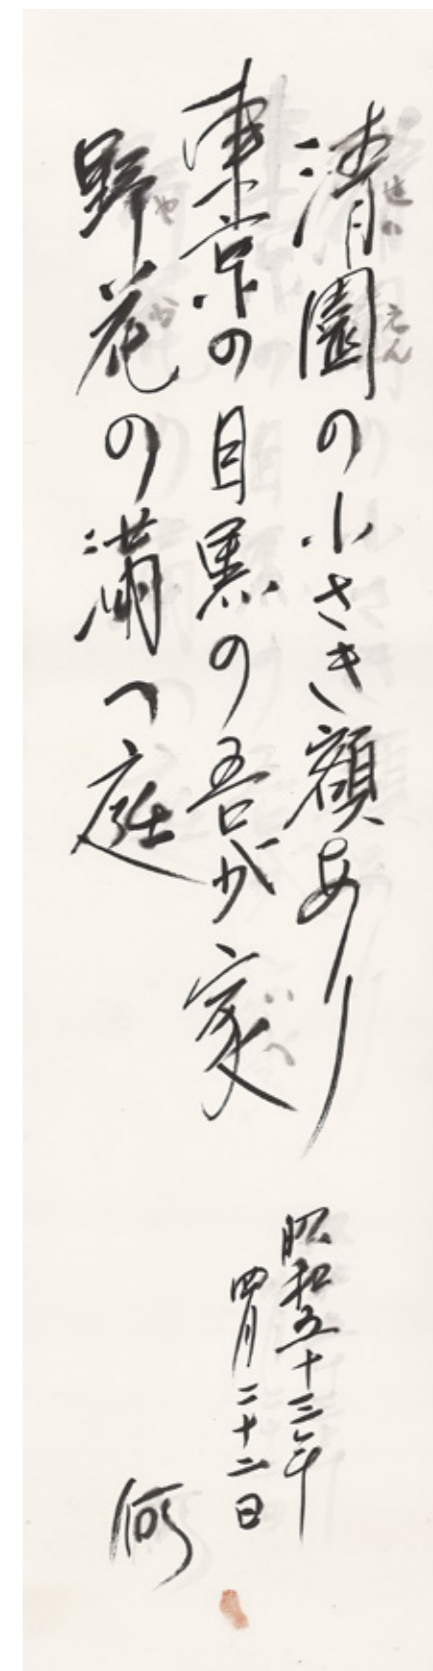 清園の小さき額あり
せいえん
東京の目黒の吾が家
いへ
野花の満つ庭
やか
昭和五十三年
四月二十二日
何